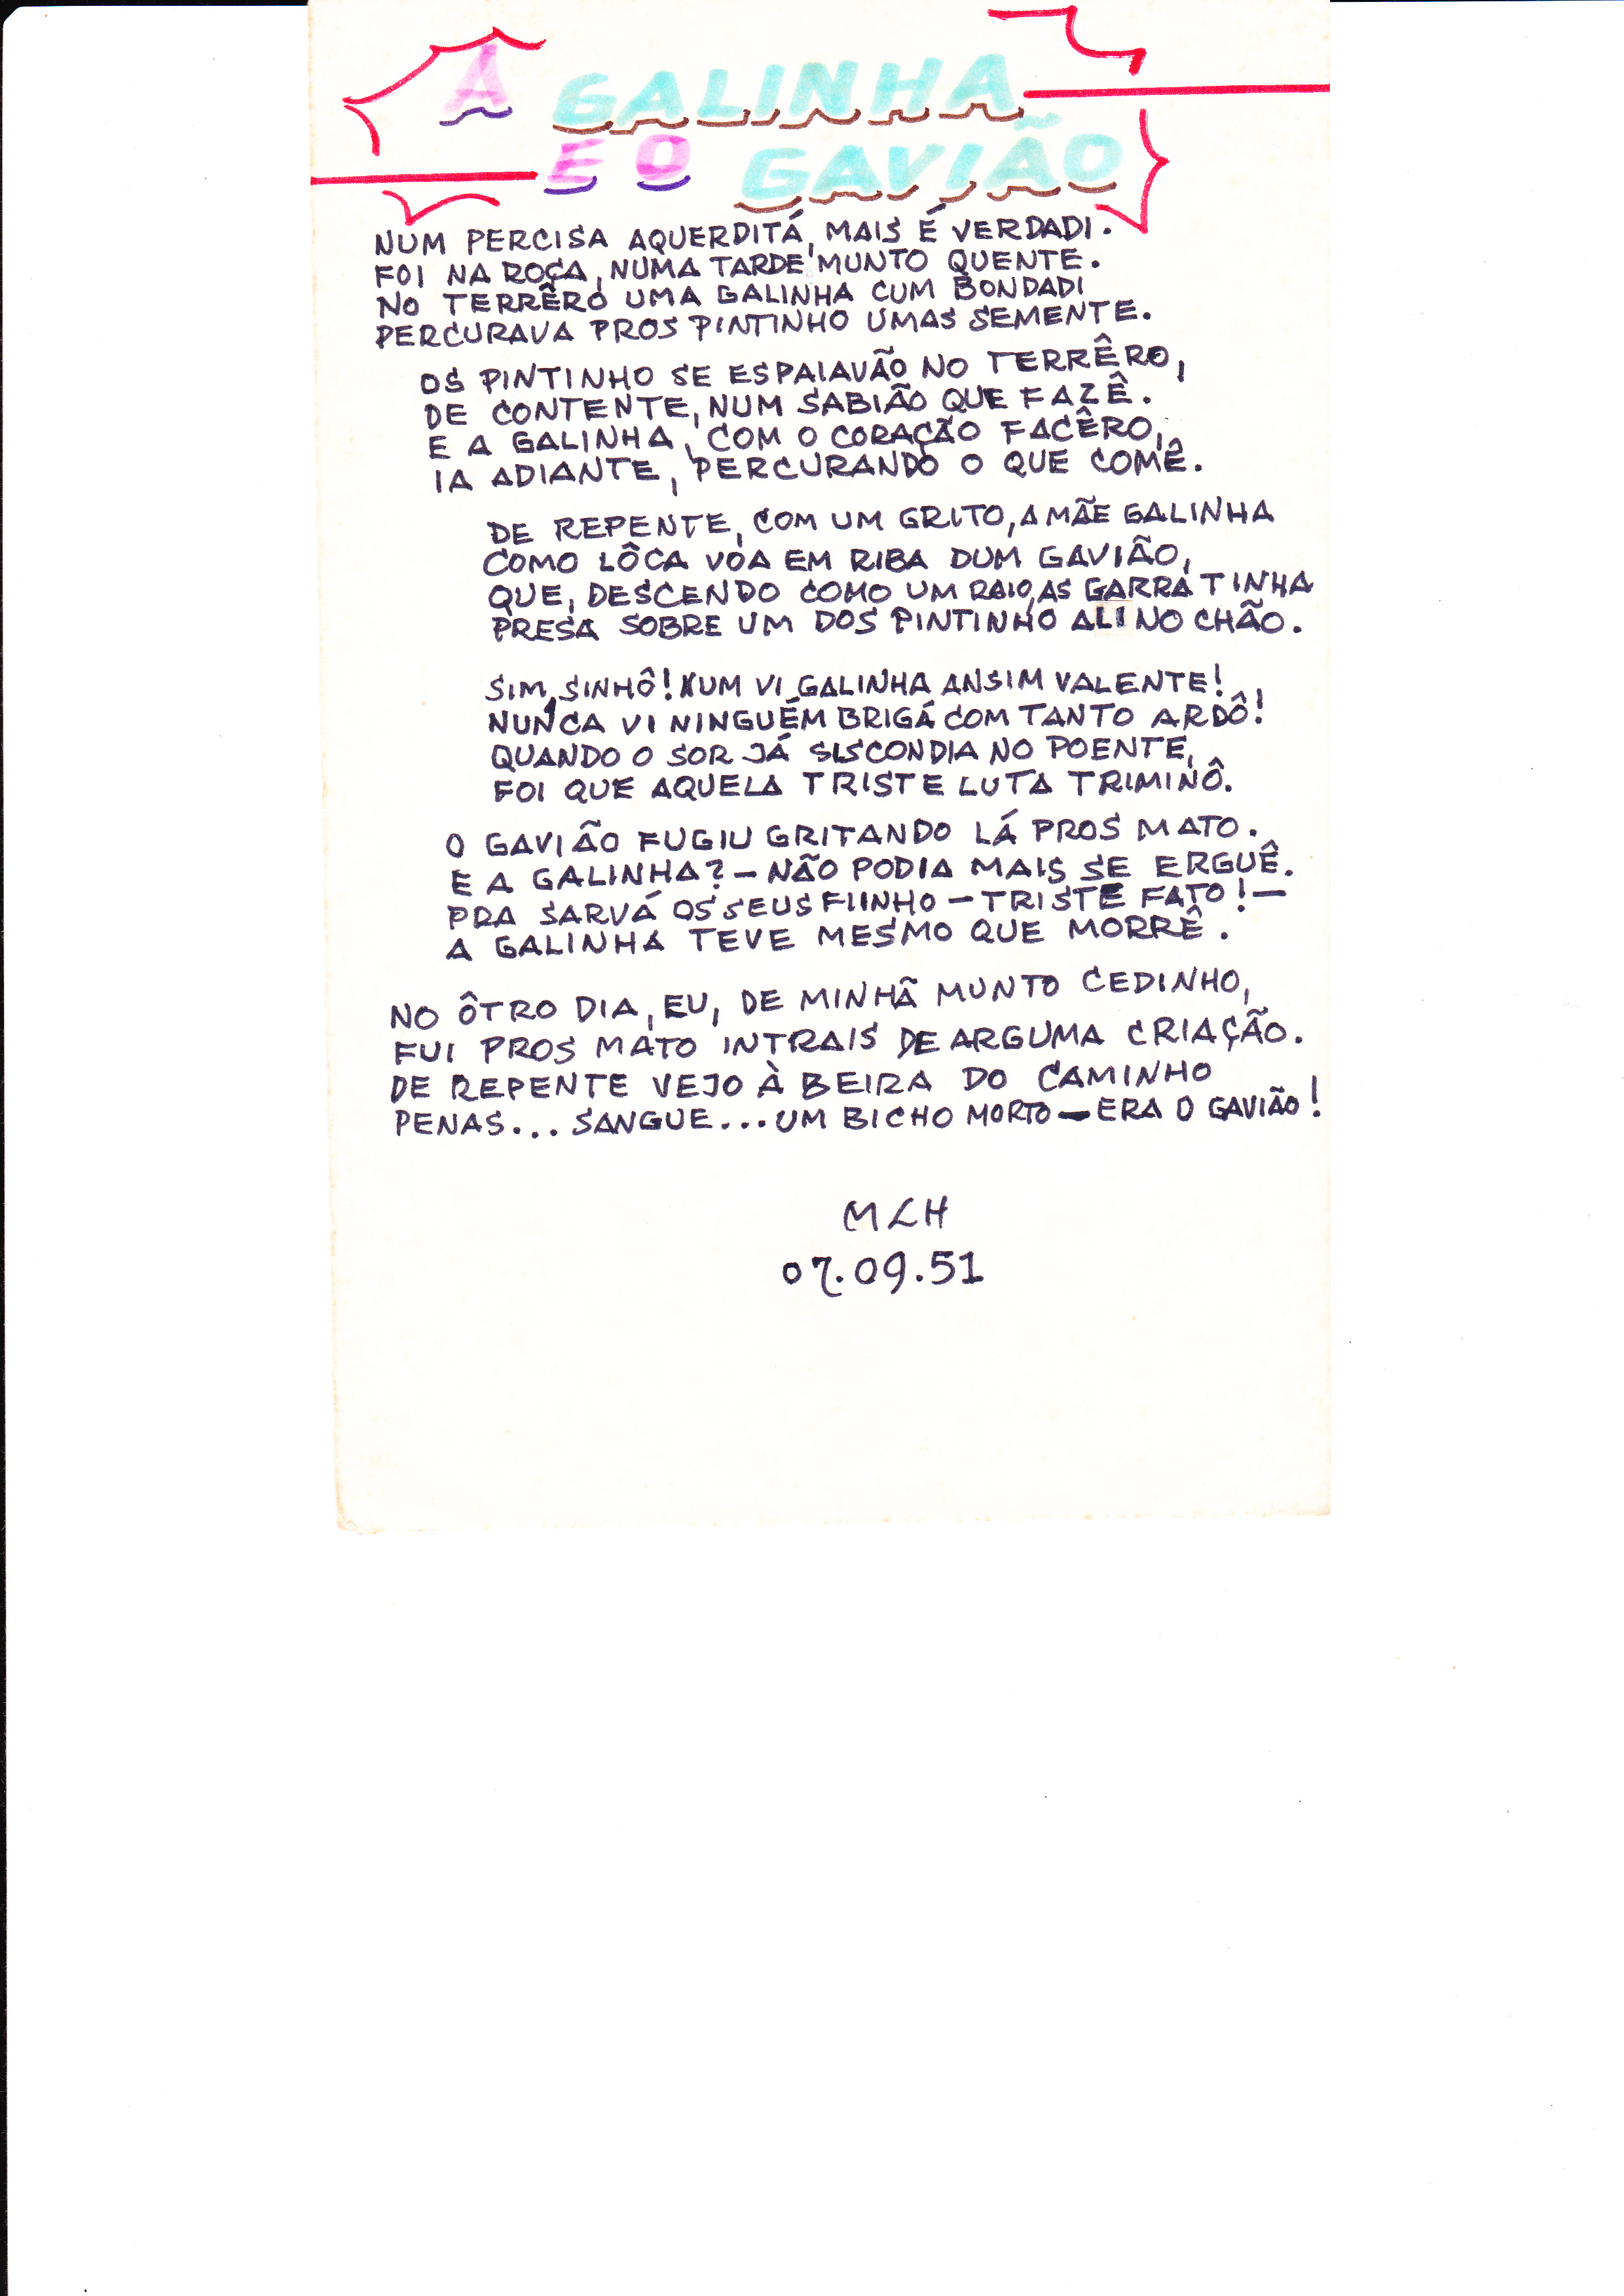 A GALINHA
E O GAVIÃO
NUM PERCISA AQUERDITÁ, MAIS É VERDADI.
FOI NA ROÇA, NUMA TARDE MUNTO QUENTE.
NO TERRÊRO UMA GALINHA CUM BONDADI
PERCURAVA PROS PINTINHO UMAS SEMENTE.
OS PINTINHO SE ESPAIAVÃO NO TERRÊRO,
DE CONTENTE, NUM SABIÃO QUE FAZÊ.
E A GALINHA, COM O CORAÇÃO FACÊRO,
IA ADIANTE, PERCURANDO O QUE COMÊ.
DE REPENTE, COM UM GRITO, A MÃE GALINHA
COMO LÔCA VOA EM RIBA DUM GAVIÃO,
QUE, DESCENDO COMO UM RAIO, AS GARRA TINHA
PRESA SOBRE UM DOS PINTINHO ALI NO CHÃO.
SIM, SINHÔ! NUM VI GALINHA ANSIM VALENTE!
NUNCA VI NINGUÉM BRIGÁ COM TANTO ARDÔ!
QUANDO O SOR JÁ SISCONDIA NO POENTE,
FOI QUE AQUELA TRISTE LUTA TRIMINÔ.
O GAVIÃO FUGIU GRITANDO LÁ PROS MATO.
E A GALINHA? — NÃO PODIA MAIS SE ERGUÊ.
PRA SARVÁ OS SEUS FIINHO — TRISTE FATO! —
A GALINHA TEVE MESMO QUE MORRÊ.
NO ÔTRO DIA, EU, DE MINHÃ MUNTO CEDINHO,
FUI PROS MATO INTRAIS DE ARGUMA CRIAÇÃO.
DE REPENTE VEJO À BEIRA DO CAMINHO
PENAS... SANGUE... UM BICHO MORTO — ERA O GAVIÃO!
MLH
07.09.51